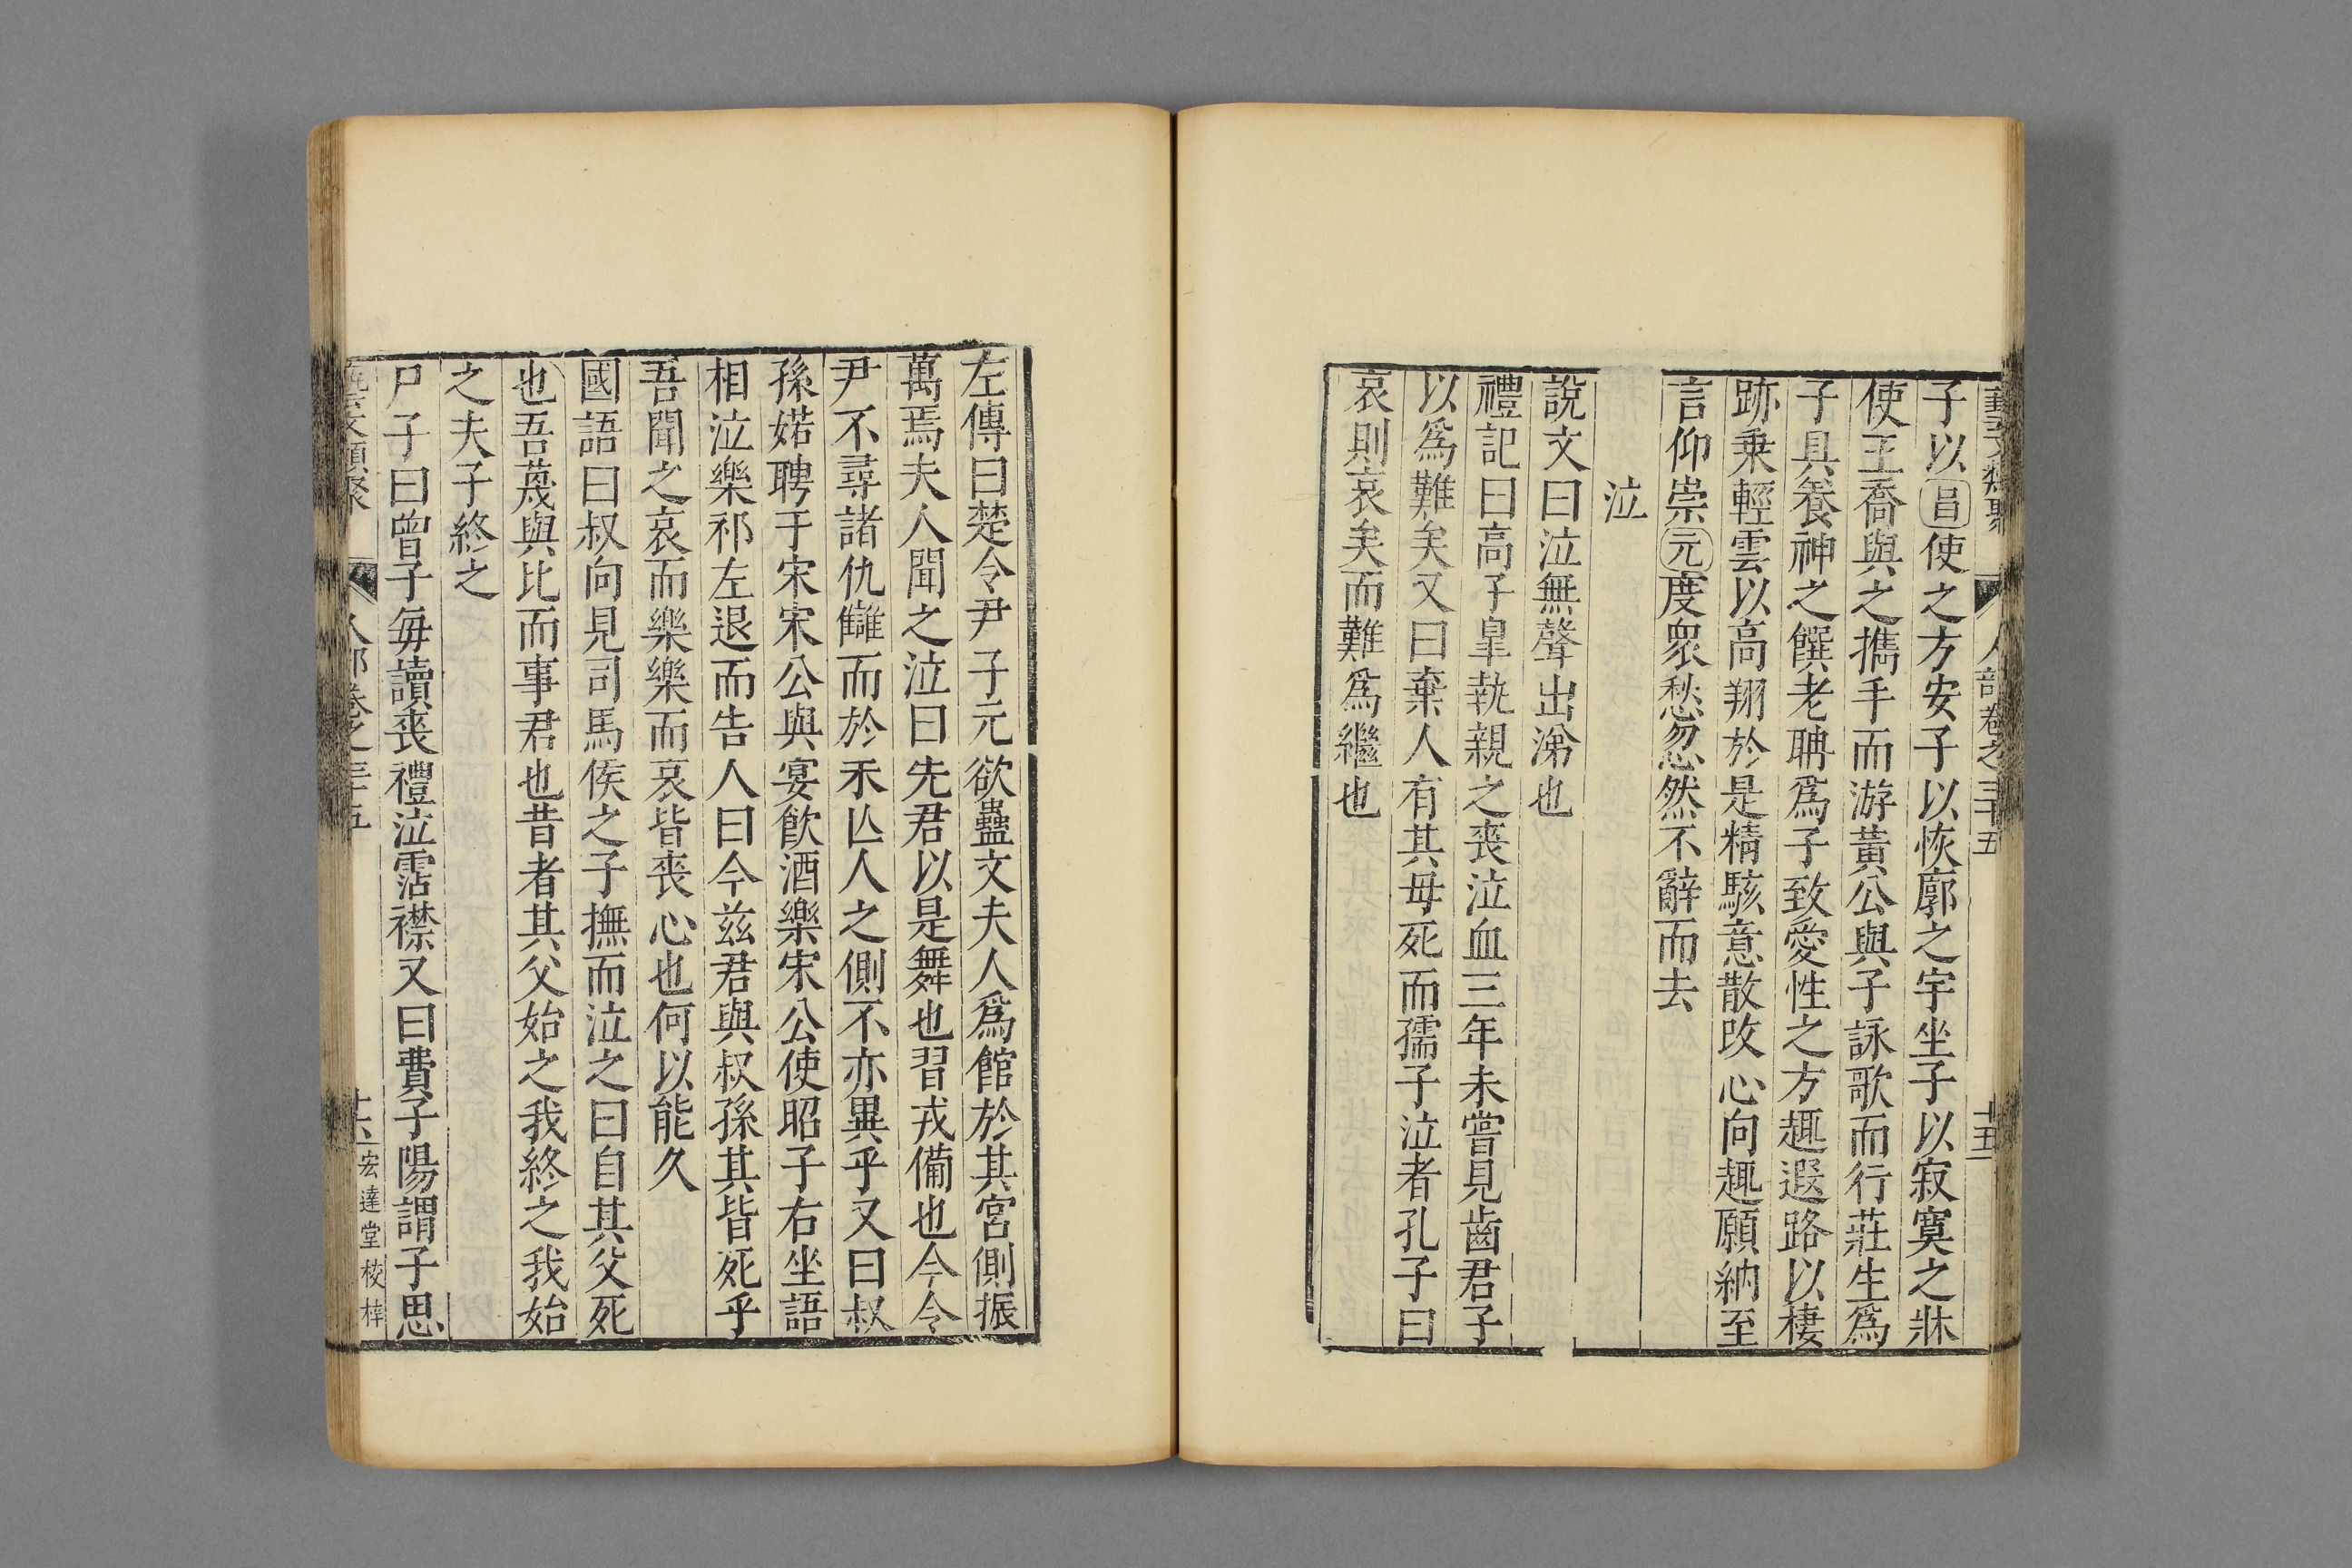 藝文類聚 人部卷之三十五 十五
子以昌使之方安子以恢廓之宇坐子以寂寞之牀
使王喬與之擕手而游黃公與子詠歌而行莊生爲
子具養神之饌老聃爲子致愛性之方趣遐路以棲
跡乘輕雲以高翔於是精駭意散攺心向趣願納至
言仰崇元度衆愁忽然不辭而去
泣
說文曰泣無聲出涕也
禮記曰高子臯執親之喪泣血三年未嘗見齒君子
以爲難矣又曰棄人有其母死而孺子泣者孔子曰
哀則哀矣而難爲繼也
左傳曰楚令尹子元欲蠱文夫人爲館於其宮側振
萬焉夫人聞之泣曰先君以是舞也習戎備也今令
尹不尋諸仇讎而於未亾人之側不亦異乎又曰叔
孫婼聘于宋宋公與宴飮酒樂宋公使昭子右坐語
相泣樂祁左退而告人曰今兹君與叔孫其皆死乎
吾聞之哀而樂樂而哀皆喪心也何以能久
國語曰叔向見司馬侯之子撫而泣之曰自其父死
也吾蔑與比而事君也昔者其父始之我終之我始
之夫子終之
尸子曰曾子每讀喪禮泣霑襟又曰費子陽謂子思
藝文類聚 人部卷之三十五 十六 宏達堂校梓